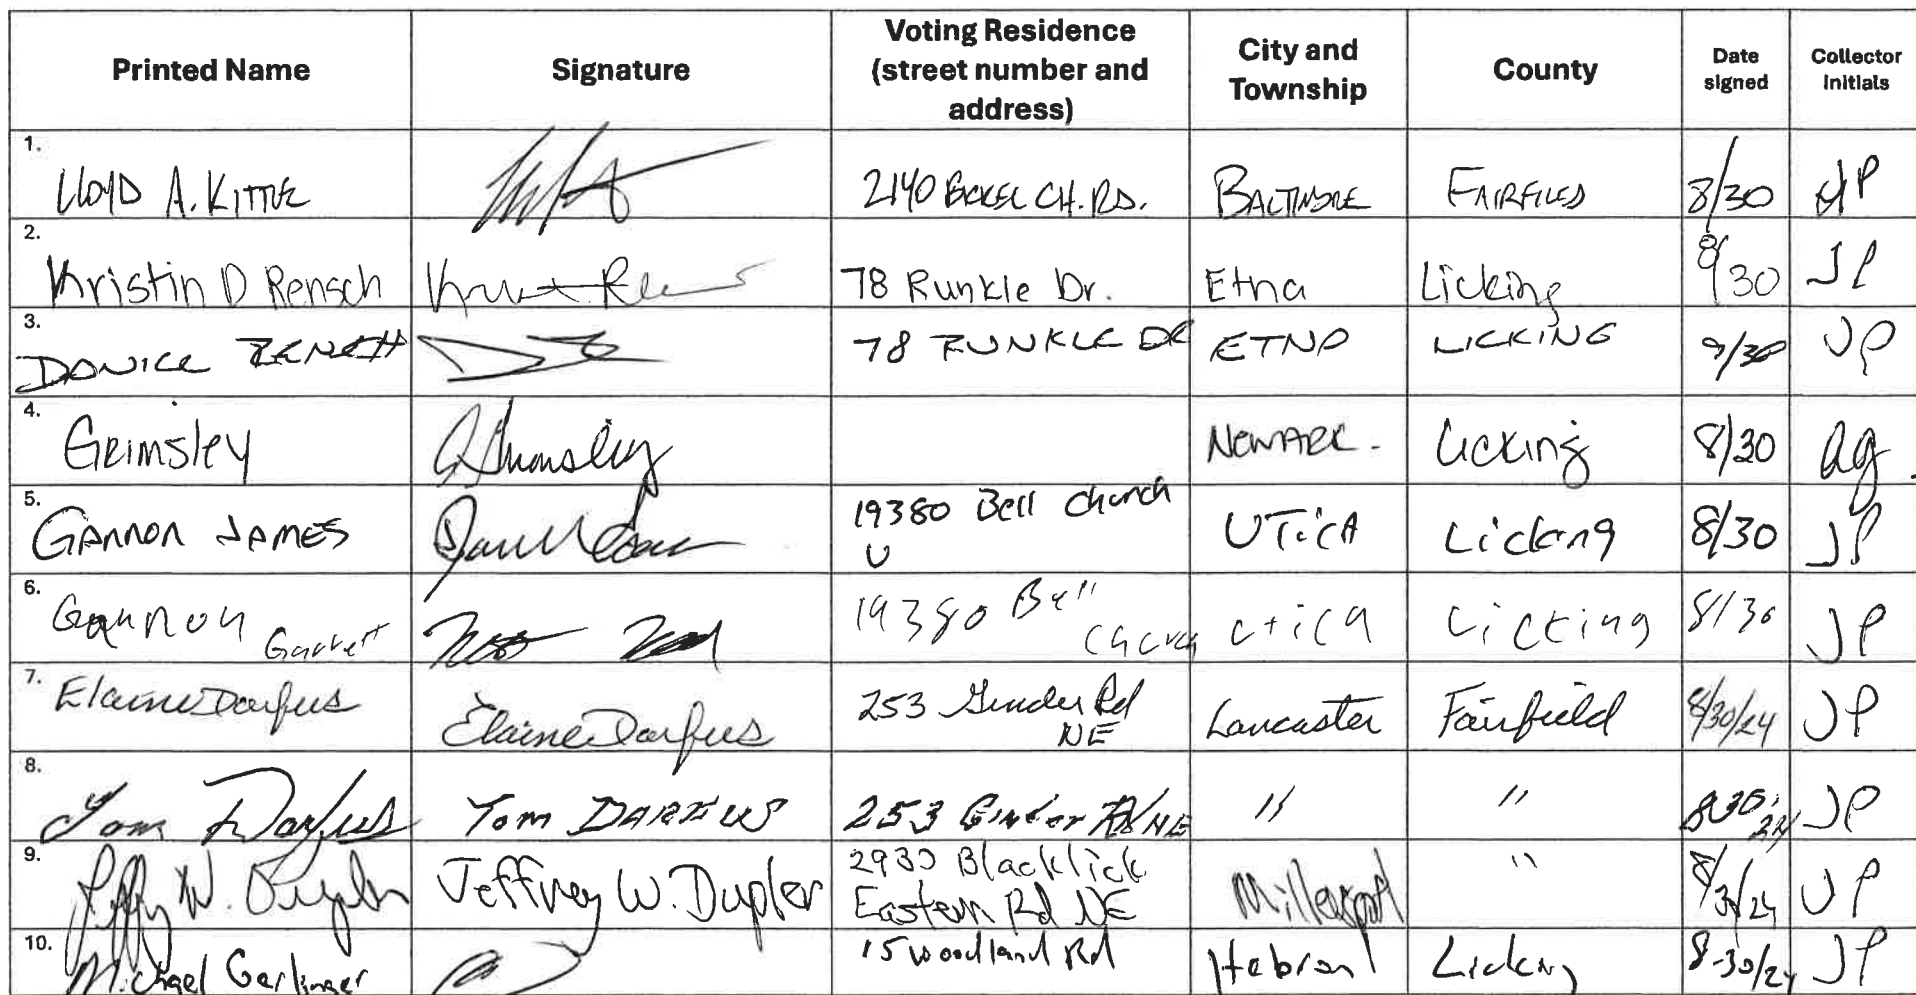 Printed Name Signature Voting Residence (street number and address) City and Township County Date signed Collector Initials
1. LLOYD A. KITTLE 2140 BICKEL CH. RD. BALTIMORE FAIRFILED 8/30 JP
2. Kristin D Rensch 78 Runkle Dr. Etna Licking 8/30 JP
3. 78 RUNKLE DR ETNA LICKING JP
4. GRIMSLEY Grimsley NEWARK. Licking 8/30 ag
5. GANNON JAMES 19380 Bell Church UTicA Licking 8/30 JP
6. Gannon Garrett 19380 Bell Church Utica Licking 8/30 JP
7. Elaine Darfus Elaine Darfus 253 Ginder Rd NE Lancaster Fairfield 8/30/24 JP
8. Tom Darfus Tom DARFUS 253 Ginder Rd NE " " 8 30 24 JP
9. Jeffrey W. Dupler Jeffrey W. Dupler 2930 Blacklick Eastern Rd NE Millersport " JP
10. Michael Gerlinger 15 Woodland Rd Hebron Licking 8-30/24 JP